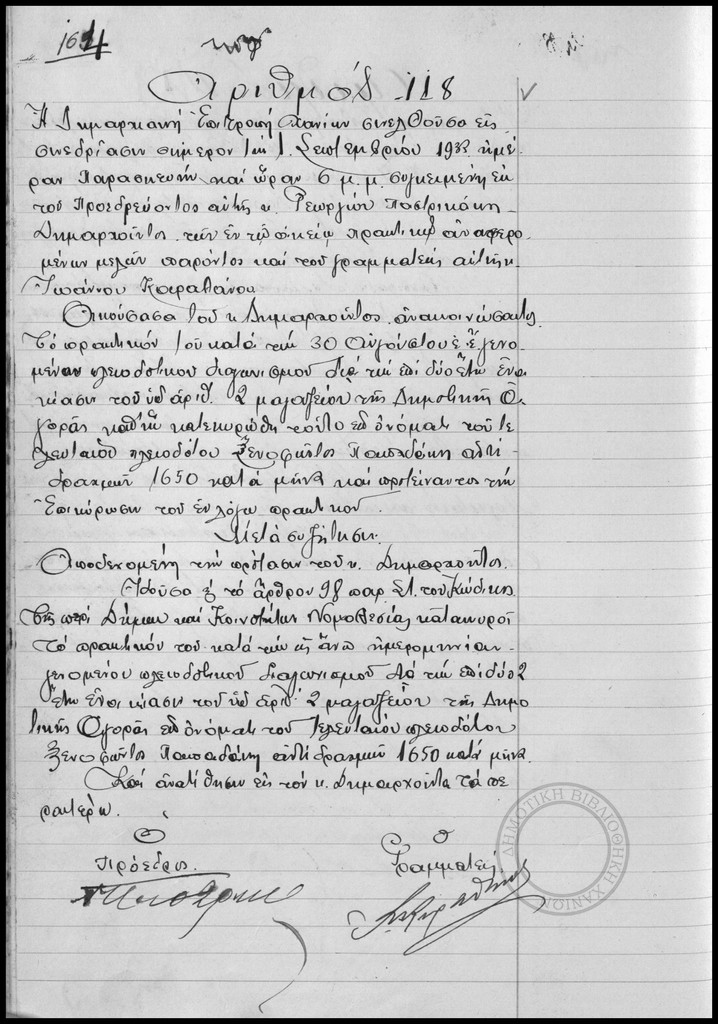 164
Αριθμός 118
Η Δημαρχιακή Επιτροπή Χανίων συνελθούσα εις
συνεδρίασιν σήμερον την 1 Σεπτεμβρίου 1933 ημέ-
ραν Παρασκευήν και ώραν 6 μ.μ. συγκειμένη εκ
του Προεδρεύοντος αυτής κ. Γεωργίου
Δημαρχούντος των εν τω οικείω πρακτικώ αναφερο-
μένων μελών παρόντος και του γραμματέως αυτής κ.
Ιωάννου Καραθάνου
Ακούσασα του κ Δημαρχούντος ανακοινώσαντος
το πρακτικόν του κατά την 30 Αυγούστου έ.έ. γενο-
μένου πλειοδοτικού διαγωνισμού διά την επί δύο έτη ενοι
κίασιν του υπ αριθ. 2 μαγαζείου της Δημοτικής Α-
γοράς καθ' ην κατεκυρώθη τούτο επ ονόματι του τε-
λευταίου πλειοδότου Ξενοφώντος Παπαδάκη αντί
δραχμών 1650 κατά μήνα και προτείναντος την
Επικύρωσιν του εν λόγω πρακτικού.
Μετά συζήτησιν.
Αποδεχομένη την πρότασιν του κ. Δημαρχούντος.
Ιδούσα και το άρθρον 98 παρ. στ. του Κώδικος
της περί Δήμων και Κοινοτήτων Νομοθεσίας κατακυροί
το πρακτικόν του κατά την ως άνω ημερομηνίαν
γενομένου πλειοδοτικού διαγωνισμού διά την επί δύο 2
έτη ενοικίασιν του υπ αριθ. 2 μαγαζείου της Δημο
τικής Αγοράς επ ονόματι του τελευταίου πλειοδότου
Ξενοφώντος Παπαδάκη αντί δραχμών 1650 κατά μήνα.
Και ανατίθησιν εις τον κ. Δημαρχούντα τα πε-
ραιτέρω.
Ο Ο
Πρόεδρος Γραμματεύς
ΔΗΜΟΤΙΚΗ ΒΙΒΛΙΟΘΗΚΗ ΧΑΝΙΩΝ